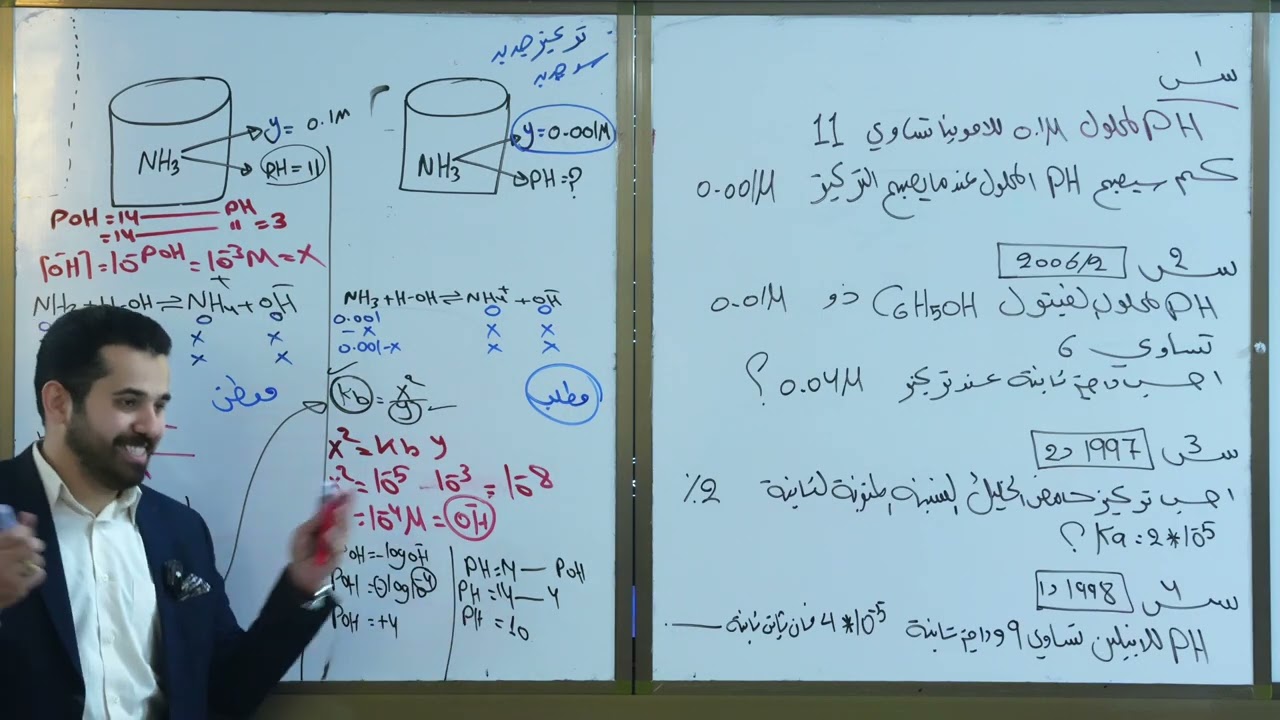 تركيز جديد
y = 0.1M
NH3
PH = 11
y = 0.001M
NH3
PH = ?
POH = 14 — PH
= 14 — 11 = 3
[OH⁻] = 10^-POH = 10^-3 M = X
+ H-OH ⇌ NH4+ + OH⁻
0 0
X X
X X
معطى
NH3 + H-OH ⇌ NH4+ + OH⁻
0.001 0 0
- X X X
0.001-X X X
مطلب
Kb = x²/y
x² = Kb y
= 10^-5 10^-3 = 10^-8
= 10^-4 M = OH⁻
POH = -log OH⁻
POH = - log 10^-4
POH = +4
PH = 14 — POH
PH = 14 — 4
PH = 10
س1
PH لمحلول 0.1M للامونيا تساوي 11
كم سيصبح PH المحلول عندما يصبح التركيز 0.001M
س2 2006/2
PH لمحلول لفينول C6H5OH ذو 0.01M
تساوي 6
احسب درجة تاينة عند تركيز 0.04M ؟
س3 1997 د2
احسب تركيز حامض الخليك لنسبة المئوية لتاينة 2٪
Ka = 2*10^-5 ؟
س4 1998 د1
PH للانيلين تساوي 9 ودرجة تاينة 4*10^-5 فان ثابت تاينة ———